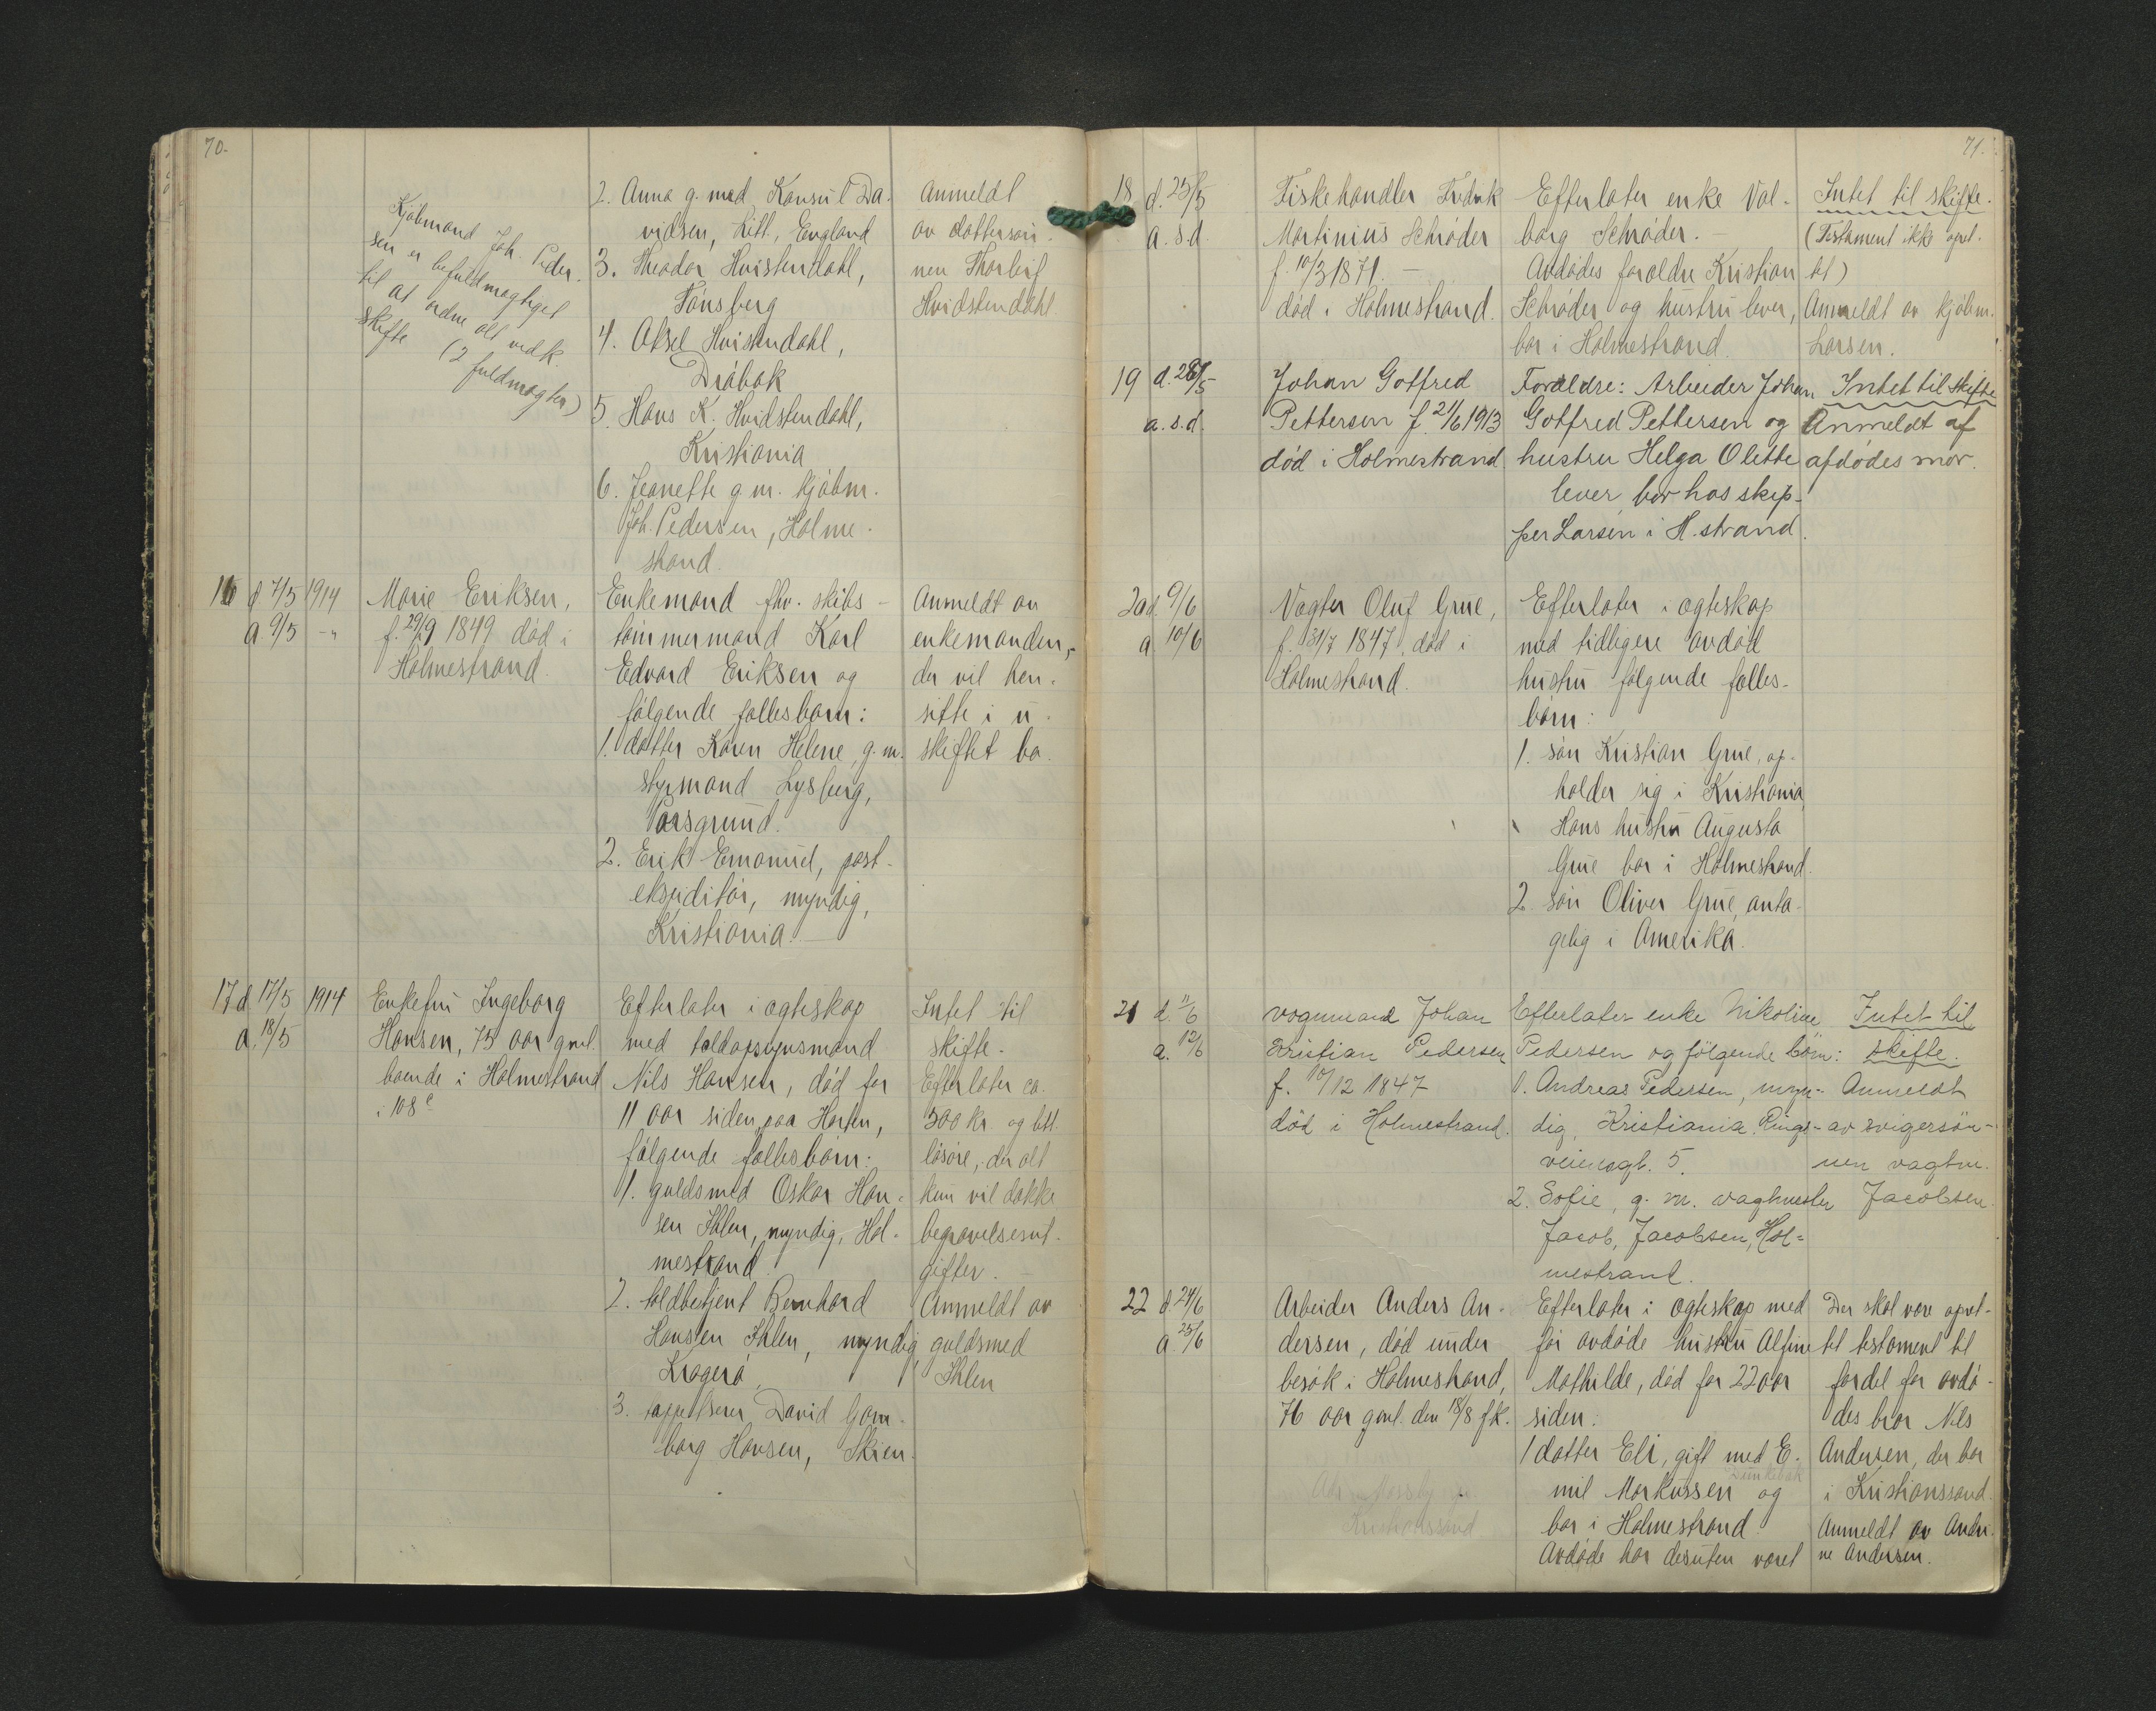 70.
Kjøbmand Joh. Peder-
sen er befuldmægtiget
til at ordne alt vedk.
skifte (2 fuldmagter)
2. Anna g. med Konsul Da-
vidsen, Litt., England
3. Theodor Hvistendahl,
Tønsberg
4. Aksel Hvistendahl,
Drøbak
5. Hans K. Hvidstendahl,
Kristiania
6. Jeanette g. m. kjøbm.
Joh. Pedersen, Holme-
strand.
Anmeldt
av dattersøn-
nen Thorleif
Hvidstendahl
16 d 7/5 1914
a 9/5 -"-
Marie Eriksen,
f. 29/9 1849 død i
Holmestrand.
Enkemand fhv. skibs-
tømmermand Karl
Edvard Eriksen og
følgende fællesbarn:
1. datter Karen Helene, g. m.
styrmand Lysberg,
Porsgrund.
2. Erik Emanuel, post-
ekspeditør, myndig,
Kristiania.
Anmeldt av
enkemanden,
der vil hen-
sitte i u-
skiftet bo.
17 d 17/5 1914
a. 18/5
Enkefru Ingeborg
Hansen, 75 aar gml.
boende i Holmestrand
i 108 c
Efterlater i ægteskap
med toldopsynsmand
Nils Hansen, død for
11 aar siden paa Horten,
følgende fællesbørn:
1. guldsmed Oskar Han-
sen Ihlen, myndig, Hol-
mestrand.
2. toldbetjent Bernhard
Hansen Ihlen, myndig
Kragerø,
3. David Gam-
borg Hansen, Skien.
Intet til
skifte.
Efterlater ca.
300 kr og litt
løsøre, der alt
kun vil dække
begravelsesut-
gifter.
Anmeldt av
guldsmed
Ihlen
71.
18 d. 25/5
a. s.d.
Fiskehandler Fredrik
Martinius Schrøder
f. 10/3 1871.
død i Holmestrand.
Efterlater enke Val-
borg Schrøder.
Avdødes forældre Kristian
Schrøder og hustru lever,
bor i Holmestrand.
Intet til skifte.
(Testament ikke opret-
tet)
Anmeldt av kjøbm.
Larsen.
19 d. 28/5
a. s.d.
Johan Gotfred
Pettersen f. 21/6 1913
død i Holmestrand
Forældre: Arbeider Johan
Gotfred Pettersen og
hustru Helga Olette
lever bor hos skip-
per Larsen i H.strand.
Intet til skifte
Anmeldt af
afdødes mor.
20 d. 9/6
a 10/6
Vægter Oluf Grue,
f. 31/7 1847, død i
Holmestrand.
Efterlater i ægteskap
med tidligere avdød
hustru følgende fælles-
børn:
1. søn Kristian Grue, op-
holder sig i Kristiania,
Hans hustru Augusta
Grue bor i Holmestrand.
2. søn Oliver Grue, anta-
gelig i Amerika.
21 d. 11/6
a. 12/6
Vognmand Johan
Kristian Pedersen
f. 10/12 1847
død i Holmestrand.
Efterlater enke Nikoline
Pedersen og følgende børn:
1. Andreas Pedersen, myn-
dig, Kristiania. Rings-
veiensgt. 5.
2. Sofie, g. m. vagtmester
Jacob, Jacobsen, Hol-
mestrand.
Intet til
skifte.
Anmeldt
av svigersøn-
nen vagtm.
Jacobsen.
22 d. 24/6
a. 25/6
Arbeider Anders An-
dersen, død under
besøk i Holmestrand,
76 aar gml. den 18/8 f.k.
Kristianssand
Efterlater i ægteskap med
før avdøde hustru Alfine
Mathilde, død for 22 aar
siden:
1 datter Eli, gift med E-
mil Markussen og
bor i Holmestrand.
Avdøde har desuten været
Der skal være opret-
tet testament til
fordel for avdø-
des bror Nils
Andersen, der bor
i Kristianssand.
Anmeldt av Andri-
ne Andersen.